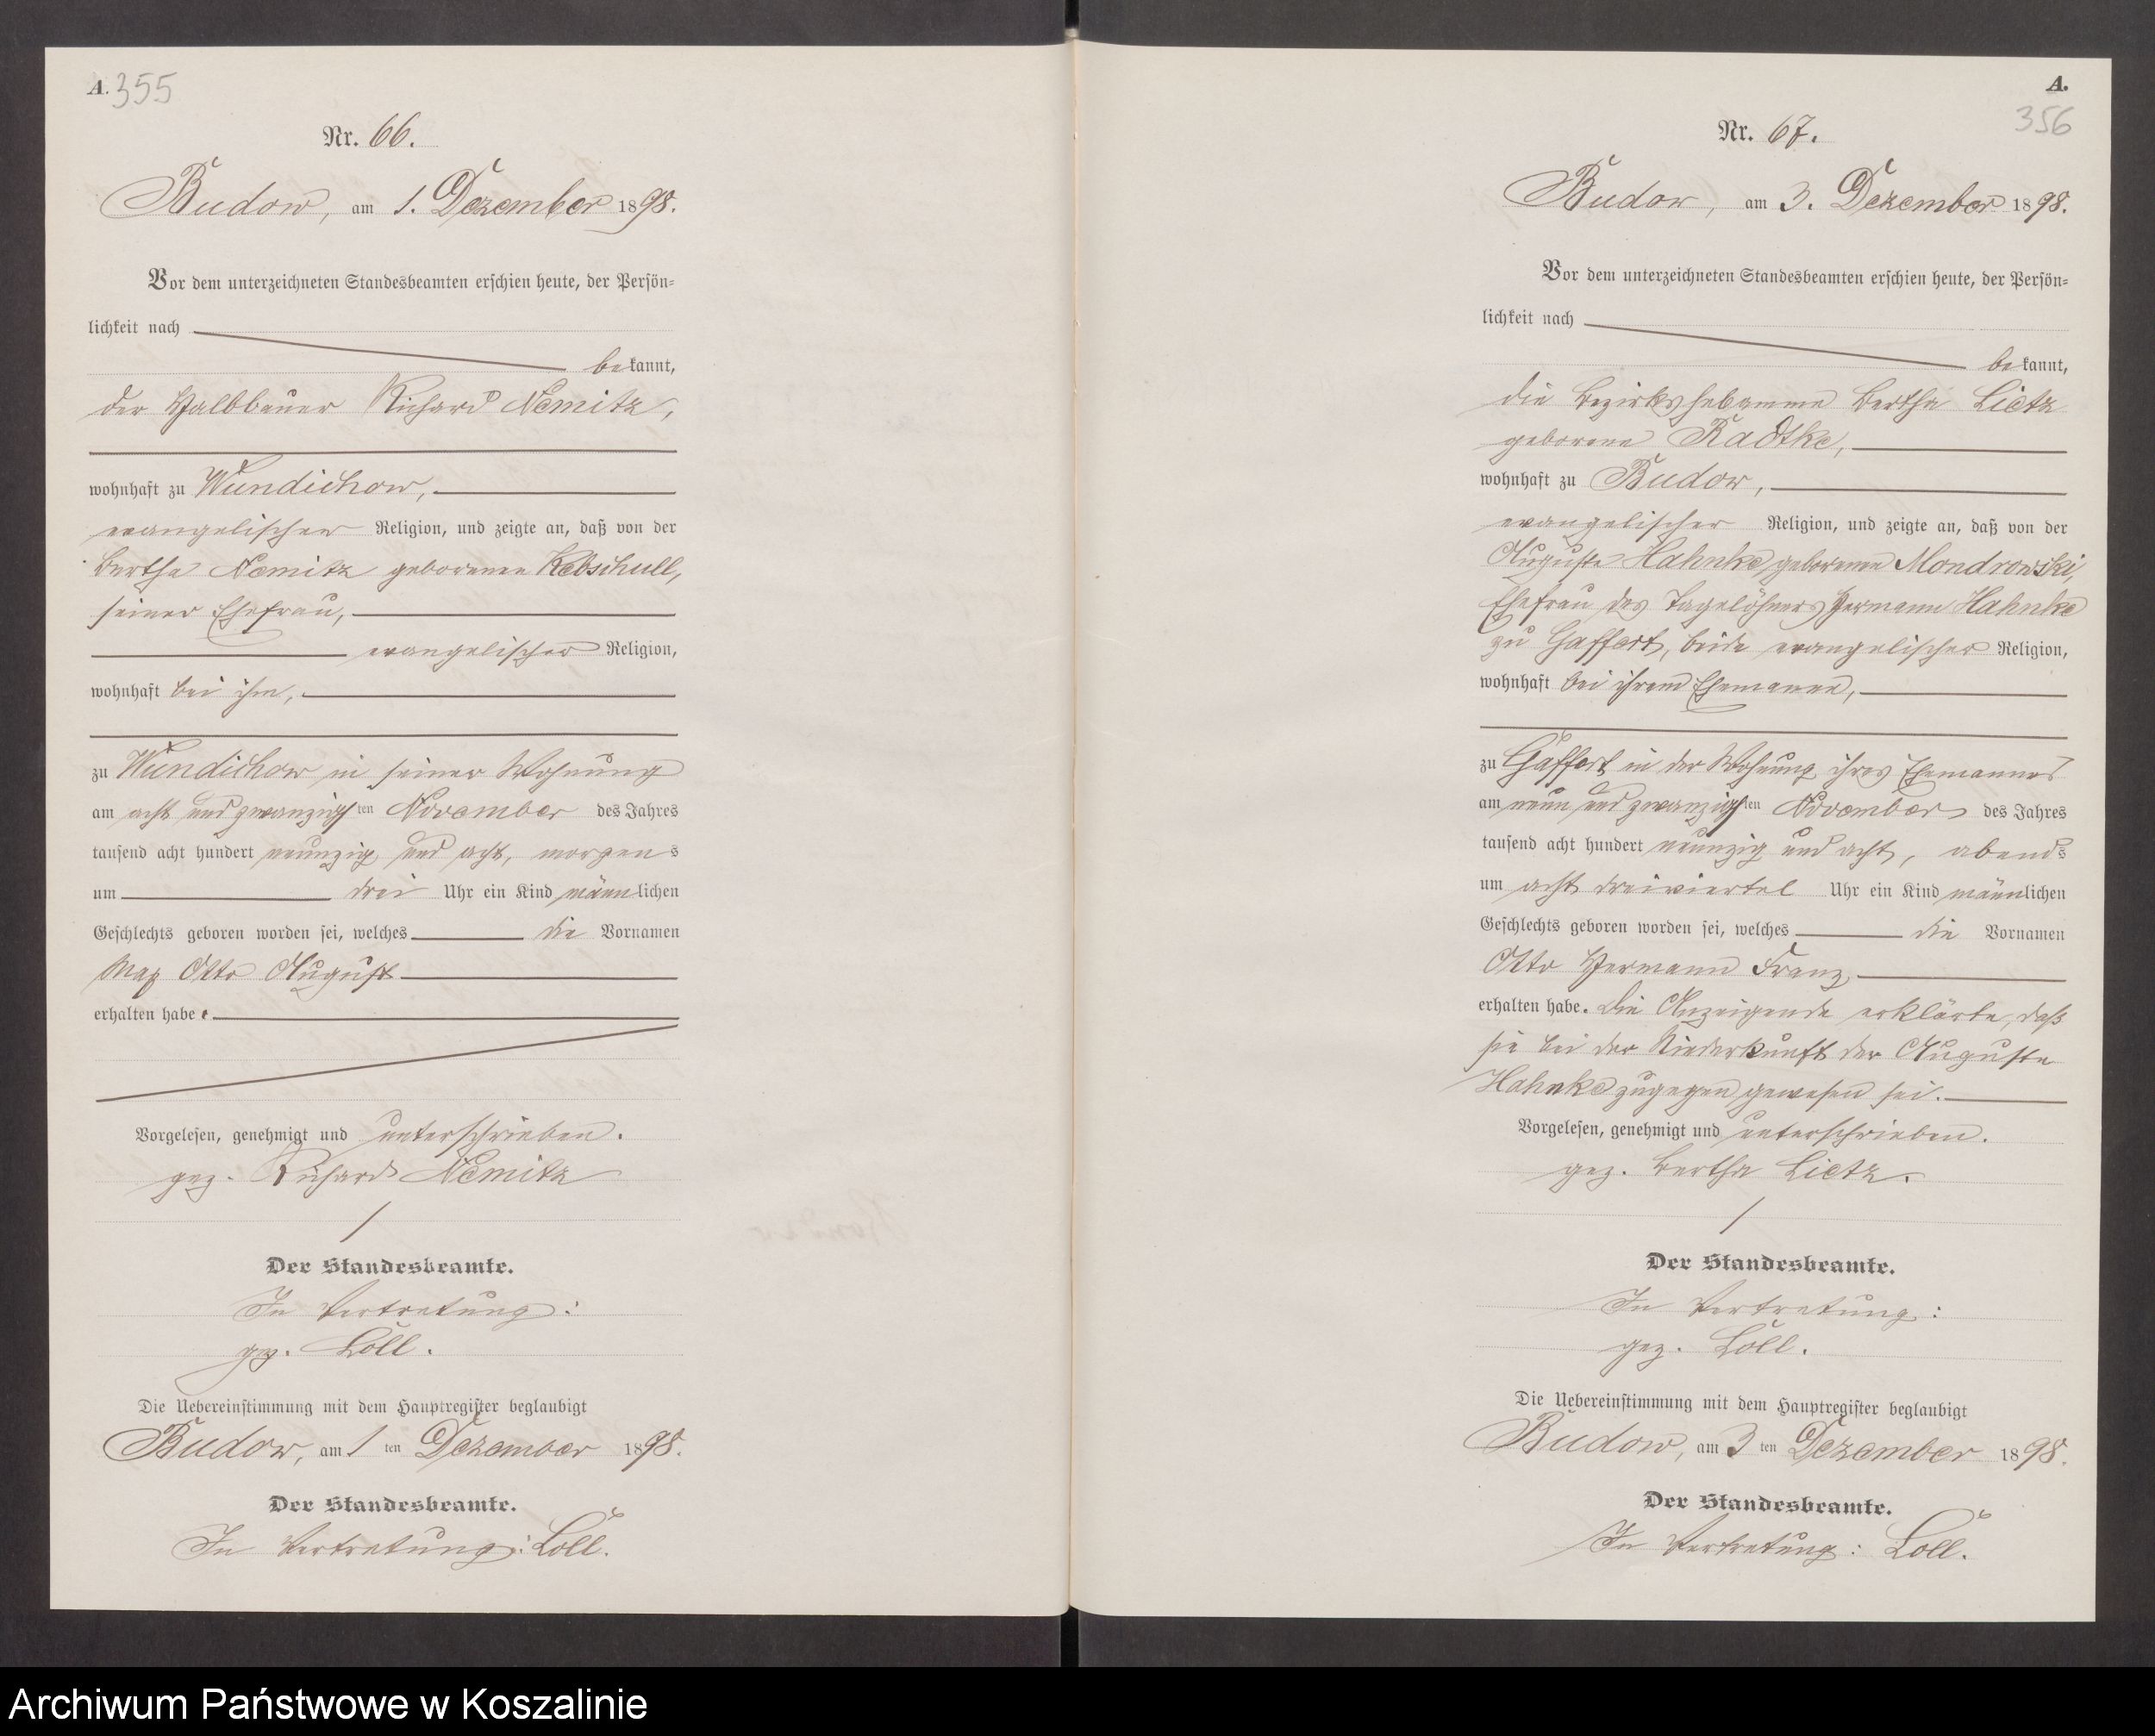 A. 355
Nr. 66.
Budow, am 1. Dezember 1898.
Vor dem unterzeichneten Standesbeamten erschien heute, der Persön-
lichkeit nach
bekannt,
der Halbbauer Richard Nemitz,
wohnhaft zu Wundichow,
evangelischer Religion, und zeigte an, daß von der
Bertha Nemitz geborenen Kebschull,
seiner Ehefrau,
evangelischer Religion,
wohnhaft bei ihm,
zu Wundichow in seiner Wohnung
am acht und zwanzigsten November des Jahres
tausend acht hundert neunzig und acht, morgens
um drei Uhr ein Kind männlichen
Geschlechts geboren worden sei, welches die Vornamen
Max Otto August
erhalten habe.
Vorgelesen, genehmigt und unterschrieben.
gez. Richard Nemitz
Der Standesbeamte.
In Vertretung:
gez. Löll.
Die Uebereinstimmung mit dem Hauptregister beglaubigt
Budow, am 1 ten Dezember 1898.
Der Standesbeamte.
In Vertretung: Löll.
A.
356
Nr. 67.
Budow, am 3. Dezember 1898.
Vor dem unterzeichneten Standesbeamten erschien heute, der Persön-
lichkeit nach
bekannt,
die Bezirkshebamme Bertha Lietz
geborene Radtke,
wohnhaft zu Budow,
evangelischer Religion, und zeigte an, daß von der
Auguste Hahnke geborenen Mondrowski,
Ehefrau des Tagelöhners Hermann Hahnke
zu Gaffert, beide evangelischer Religion,
wohnhaft bei ihrem Ehemanne,
zu Gaffert in der Wohnung ihres Ehemannes
am neun und zwanzigsten November des Jahres
tausend acht hundert neunzig und acht, abends
um acht dreiviertel Uhr ein Kind männlichen
Geschlechts geboren worden sei, welches die Vornamen
Otto Hermann Franz
erhalten habe. Die Anzeigende erklärte, daß
sie bei der Niederkunft der Auguste
Hahnke zugegen gewesen sei.
Vorgelesen, genehmigt und unterschrieben.
gez. Bertha Lietz.
Der Standesbeamte.
In Vertretung:
gez. Löll.
Die Uebereinstimmung mit dem Hauptregister beglaubigt
Budow, am 3 ten Dezember 1898.
Der Standesbeamte.
In Vertretung: Löll.
Archiwum Państwowe w Koszalinie